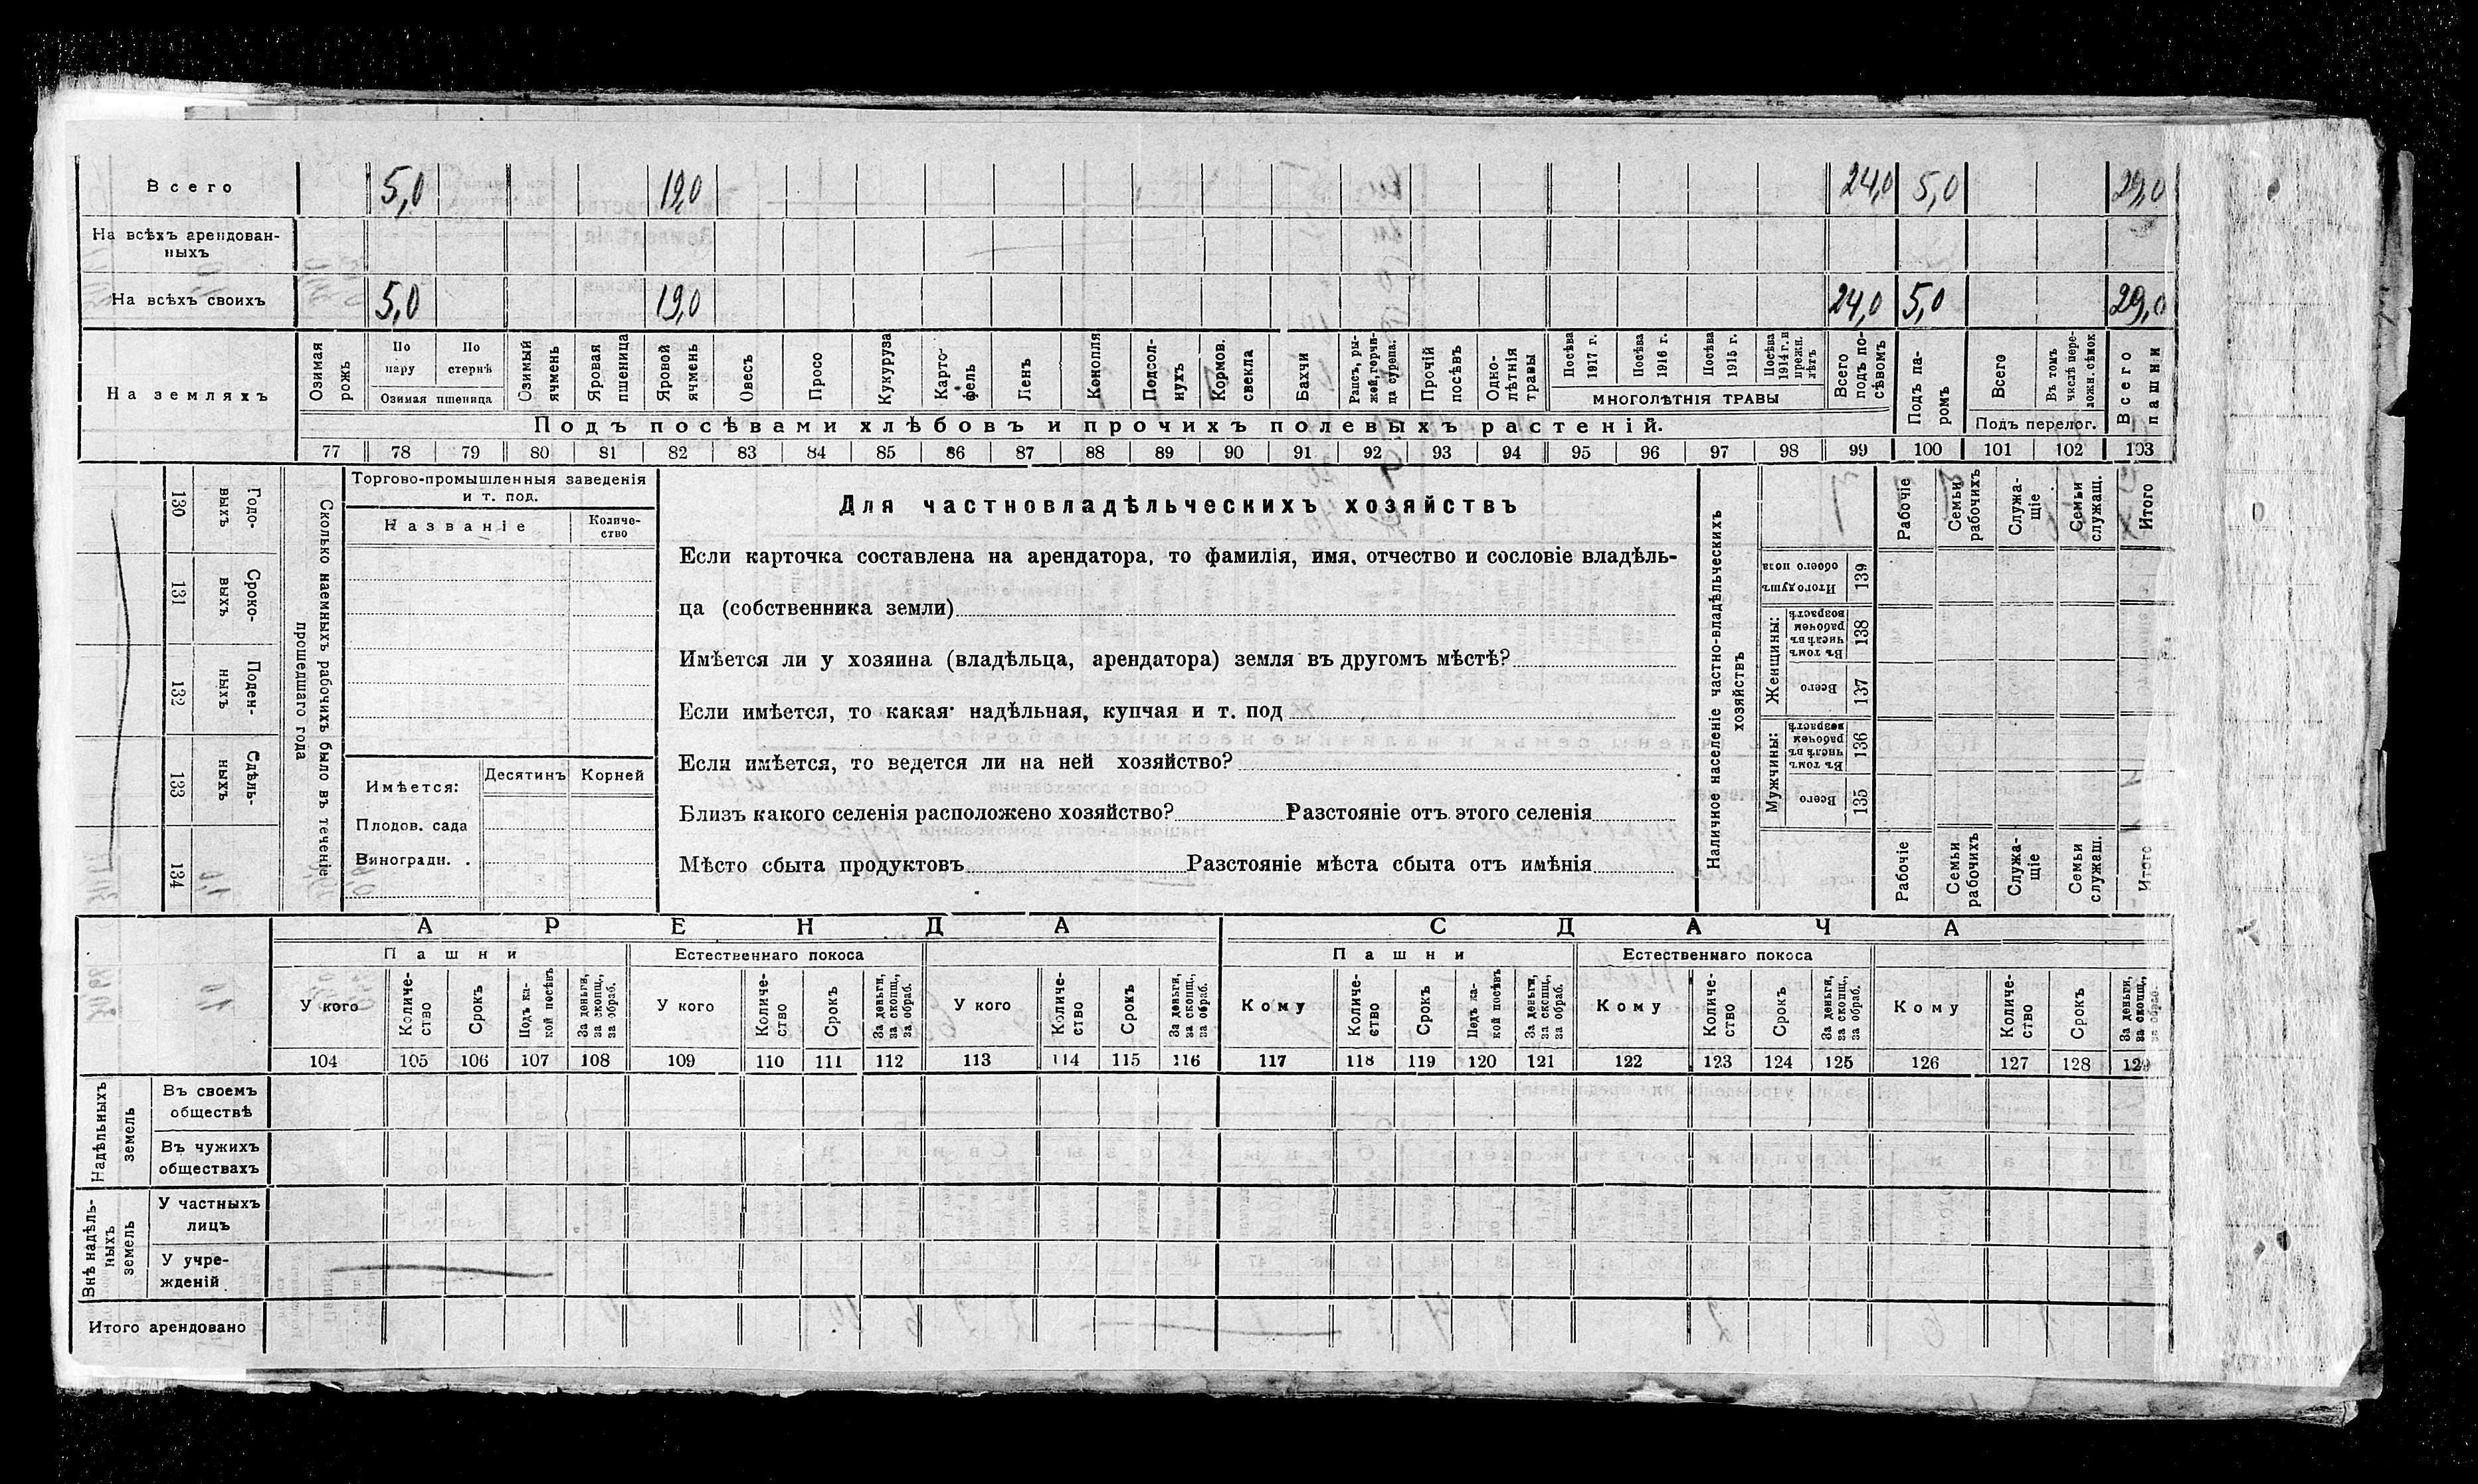 Всего 5,0 19,0 24,0 5,0 29,0
На всѣхъ арендован-
ныхъ
На всѣхъ своихъ 5,0 19,0 24,0 5,0 29,0
На земляхъ
Озимая рожь
По пару
По стернѣ
Озимая пшеница
Озимый ячмень
Яровая пшеница
Яровой ячмень
Овесъ
Просо
Кукуруза
Карто-
фель
Ленъ
Конопля
Подсол-
нухъ
Кормов. свекла
Бахчи
Рапсъ, ры-
жей, горчи-
ца сурепа.
Прочій посѣвъ
Одно-
лѣтнія травы
Посѣва 1917 г.
Посѣва 1916 г.
Посѣва 1915 г.
Посѣва 1914 г. и прежн. лѣтъ
МНОГОЛѢТНІЯ ТРАВЫ
Всего подъ по-
сѣвомъ
Подъ па-
ромъ
Всего
Въ томъ числѣ пере-
ложн. сѣнок
Подъ перелог.
Всего пашни
Подъ посѣвами хлѣбовъ и прочихъ полевыхъ растеній.
77 78 79 80 81 82 83 84 85 86 87 88 89 90 91 92 93 94 95 96 97 98 99 100 101 102 103
130 Годо-
выхъ
131 Сроко-
выхъ
132 Поден-
ныхъ
133 Сдѣль-
ныхъ
134
Сколько наемныхъ рабочихъ было въ теченіе
прошедшаго года
Торгово-промышленныя заведенія
и т. под.
Названіе
Количе-
ство
Имѣется:
Десятинъ Корней
Плодов. сада
Виноградн. .
Для частновладѣльческихъ хозяйствъ
Если карточка составлена на арендатора, то фамилія, имя, отчество и сословіе владѣль-
ца (собственника земли)
Имѣется ли у хозяина (владѣльца, арендатора) земля въ другомъ мѣстѣ?
Если имѣется, то какая· надѣльная, купчая и т. под
Если имѣется, то ведется ли на ней хозяйство?
Близъ какого селенія расположено хозяйство? Разстояніе отъ этого селенія
Мѣсто сбыта продуктовъ Разстояніе мѣста сбыта отъ имѣнія
Наличное населеніе частно-владѣльческихъ
хозяйствъ
Рабочіе
Семьи рабочихъ
Служа-
щіе
Семьи служащ.
Итого
Итого душъ обоего пола 139
Женщины:
Въ томъ числѣ въ рабочем возрастѣ 138
Всего 137
Мужчины:
Въ томъ числѣ въ рабочем возрастѣ 136
Всего 135
Рабочіе
Семьи рабочихъ
Служа-
щіе
Семьи служащ.
Итого
АРЕНДА СДАЧА
Пашни Естественнаго покоса Пашни Естественнаго покоса
У кого
Количе-
ство
Срокъ
Подъ ка-
кой посѣвъ
За деньги, за скопщ., за обраб.
У кого
Количе-
ство
Срокъ
За деньги, за скопщ., за обраб.
У кого
Количе-
ство
Срокъ
За деньги, за скопщ., за обраб.
Кому
Количе-
ство
Срокъ
Подъ ка-
кой посѣвъ
За деньги, за скопщ., за обраб.
Кому
Количе-
ство
Срокъ
За деньги, за скопщ., за обраб.
Кому
Количе-
ство
Срокъ
За деньги, за скопщ., за обраб.
104 105 106 107 108 109 110 111 112 113 114 115 116 117 118 119 120 121 122 123 124 125 126 127 128 129
Надѣльныхъ земель
Въ своемъ
обществѣ
Въ чужихъ
обществахъ
Внѣ надѣль-
ныхъ земель
У частныхъ
лицъ
У учре-
жденій
Итого арендовано